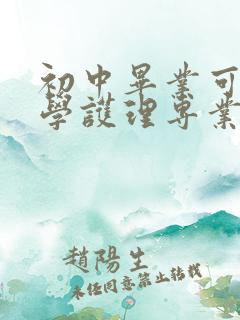 初中畢業可
學護理专業
趙陽生
未任同意禁止转载